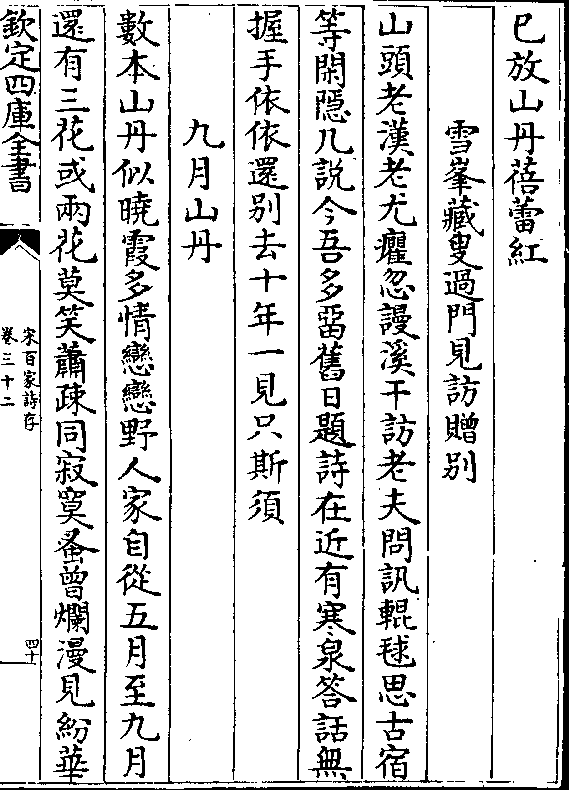 已放山丹蓓蕾紅
雪峯藏叟過門見訪贈别
山頭老漢老尤癯忽謾溪干訪老夫問訊輥毬思古宿
等閑隠几説今吾多畱舊日題詩在近有寒泉答話無
握手依依還别去十年一見只斯須
九月山丹
數本山丹似曉霞多情戀戀野人家自從五月至九月
還有三花或兩花莫笑蕭疎同寂寞蚤曾爛漫見紛華
欽定四庫全書
宋百家詩存
卷三十二
四十